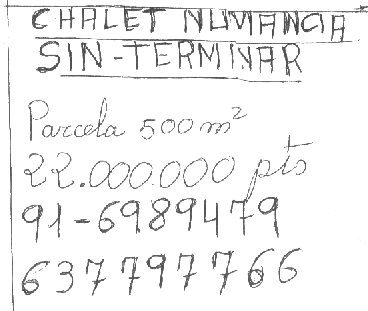 CHALET NUMANCIA
SIN-TERMINAR
Parcela 500 m²
22.000.000 pts
91-6989479
637797766